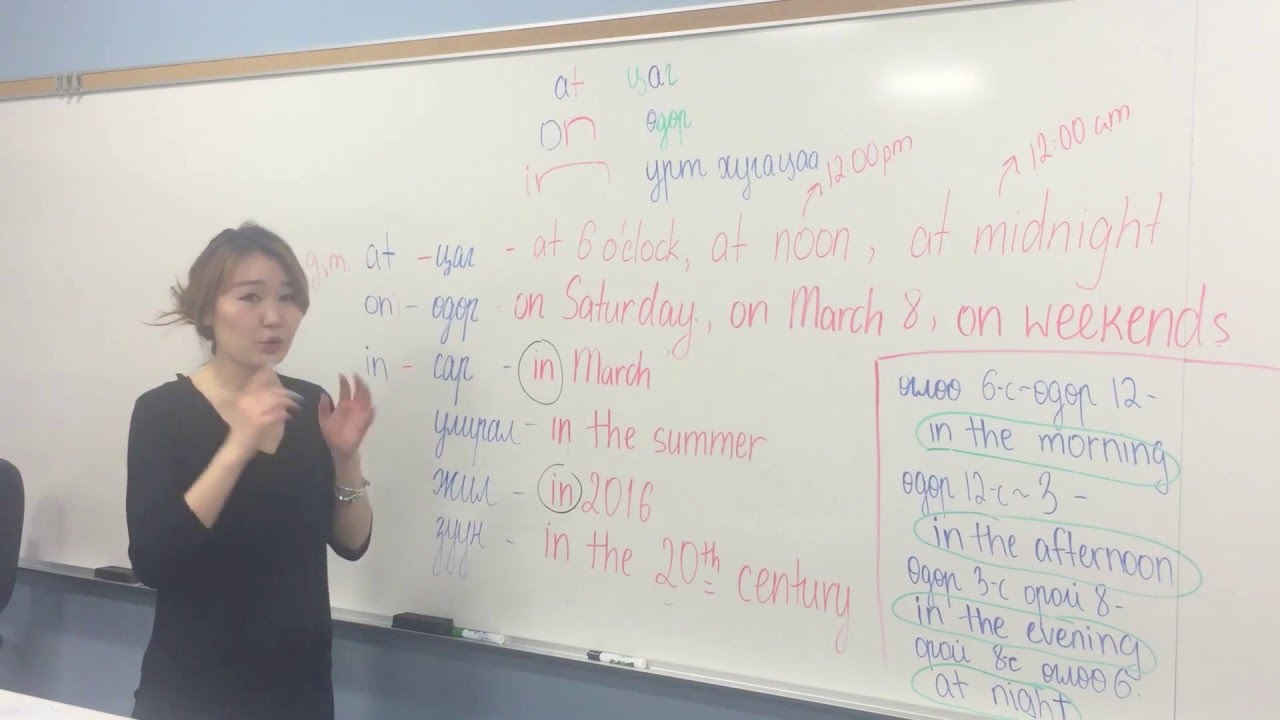 at цаг
on өдөр
in урт хугацаа
12:00 pm
12:00 am
at - цаг - at 6 o'clock, at noon, at midnight
on - өдөр - on Saturday, on March 8, on weekends
in - сар - in March
улирал - in the summer
жил - in 2016
зуун - in the 20th century
өглөө 6-с-өдөр 12-
in the morning
өдөр 12-с ~ 3 -
in the afternoon
өдөр 3-с орой 8-
in the evening
орой 8-с өглөө 6.
at night